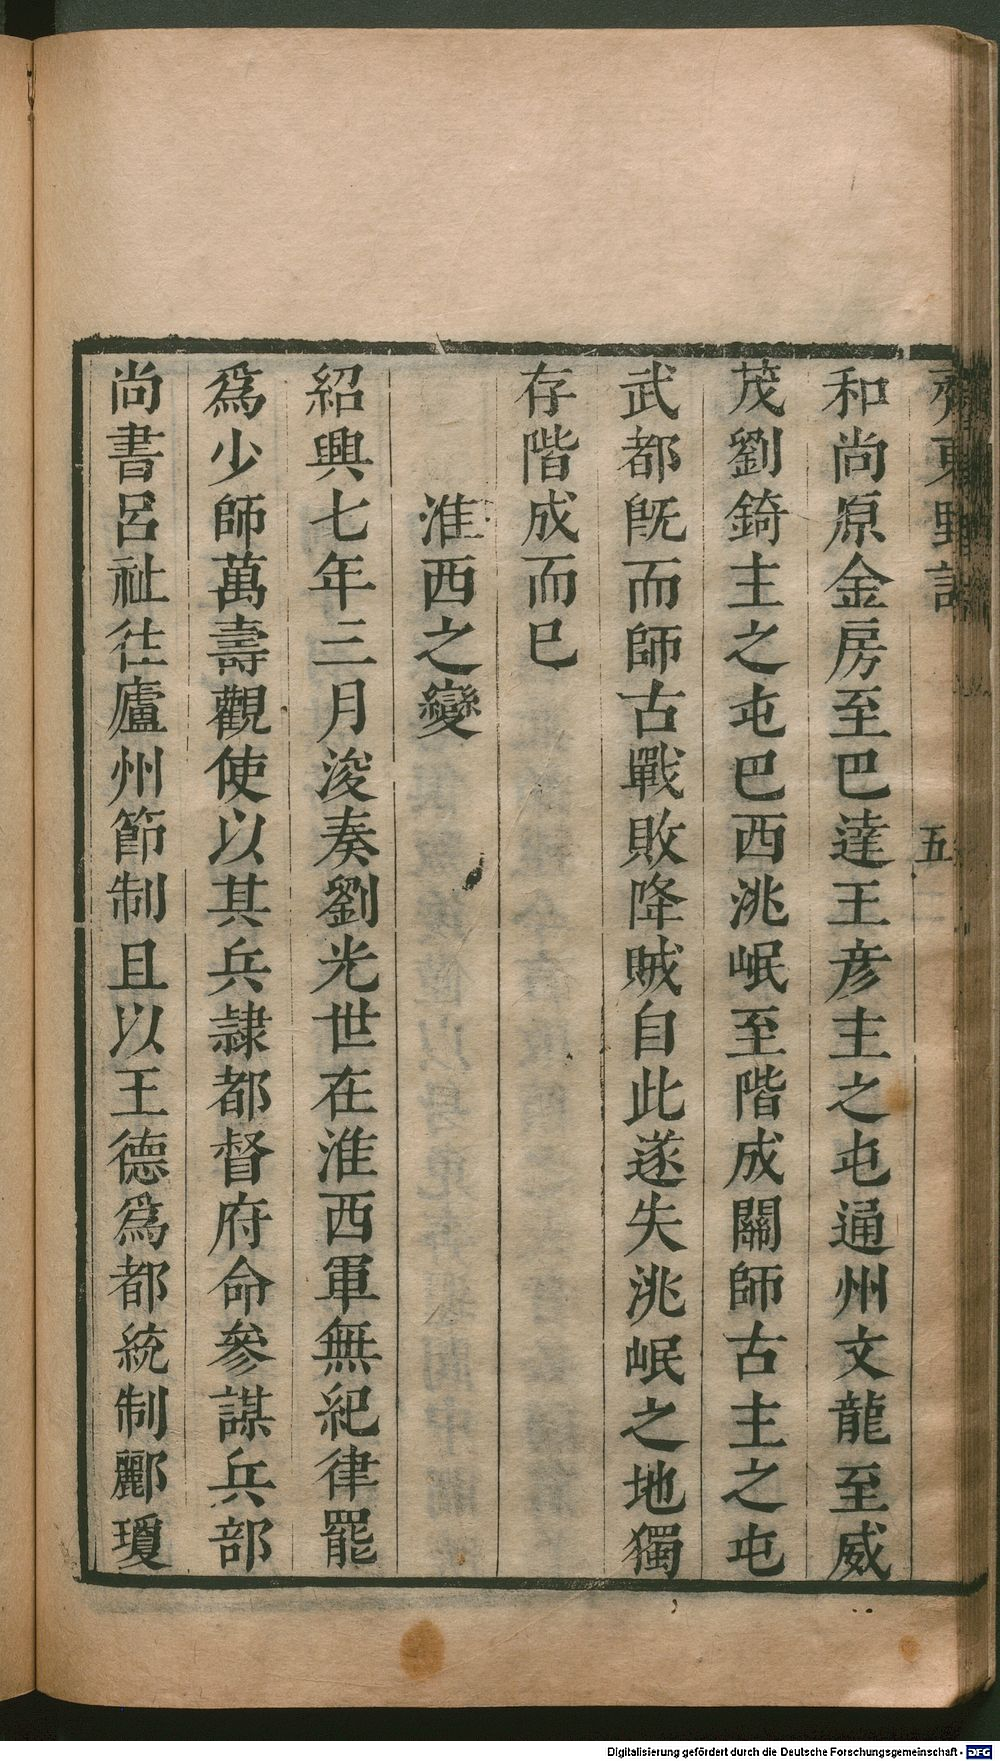 齊東野語
五
和尚原金房至巴達王彥主之屯通州文龍至威
茂劉錡主之屯巴西洮岷至階成關師古主之屯
武都旣而師古戰敗降賊自此遂失洮岷之地獨
存階成而巳
淮西之變
紹興七年三月浚奏劉光世在淮西軍無紀律罷
爲少師萬壽觀使以其兵隷都督府命參謀兵部
尚書呂祉徃廬州節制且以王德爲都統制酈瓊
Digitalisierung gefördert durch die Deutsche Forschungsgemeinschaft - DFG